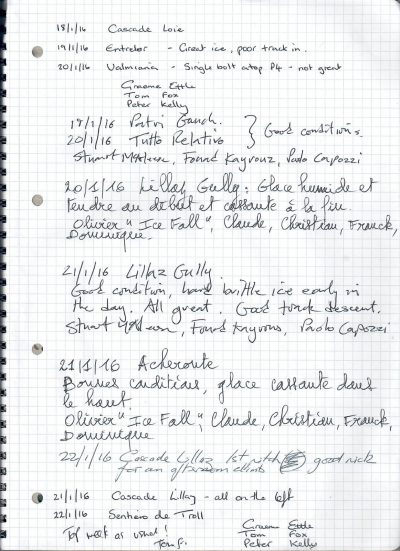 18/1/16 Cascade Loie
19/1/16 Entrelor - Great ice, poor track in.
20/1/16 Valmiana - Single bolt atop P4 - not great
Graeme Ettle
Tom Fox
Peter Kelly
18/1/16 Patri Gauch.
20/1/16 Tutto Relativo } Good conditions.
Stuart McAleese, Fouad Kayrouz, Paolo Capozzi
20/1/16 Lillaz Gully: Glace humide et
tendre au début et cassante à la fin.
Olivier "Ice Fall", Claude, Christian, Franck,
Dominique.
21/1/16 Lillaz Gully
Good condition, hard brittle ice early in
the day. All great. Good track descent.
Stuart, Fouad Kayrouz, Paolo Capozzi
21/1/16 Acheronte
Bonnes conditions, glace cassante dans
le haut.
Olivier "Ice Fall", Claude, Christian, Franck,
Dominique
22/1/16 Cascade Lillaz 1st pitch good nick
for an afternoon climb
21/1/16 Cascade Lillaz - all on the left
22/1/16 Sentiero de Troll
Top week as usual!
Graeme Ettle
Tom Fox
Peter Kelly